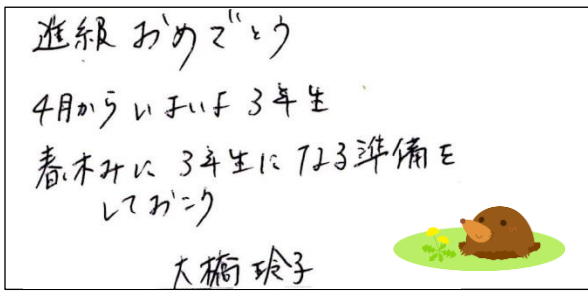 進級 おめでとう
4月から いよいよ 3年生
春休みに 3年生になる準備を
しておこう
大橋 玲子